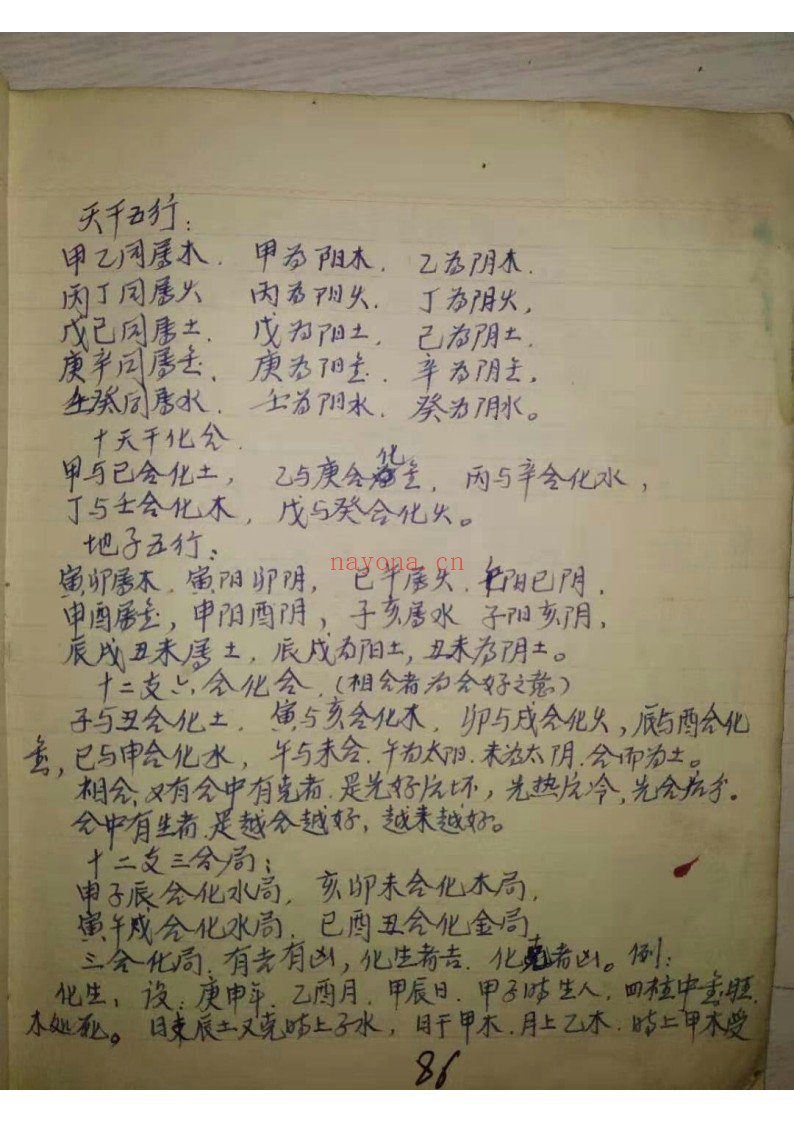 天干五行：
甲乙同属木. 甲为阳木. 乙为阴木.
丙丁同属火 丙为阳火. 丁为阴火,
戊己同属土. 戊为阳土, 己为阴土.
庚辛同属金. 庚为阳金. 辛为阴金,
壬癸同属水. 壬为阳水. 癸为阴水。
十天干化合.
甲与己合化土, 乙与庚合化金. 丙与辛合化水,
丁与壬合化木, 戊与癸合化火。
地子五行：
nayona.cn
寅卯属木. 寅阳卯阴, 巳午属火. 午阳巳阴.
申酉属金, 申阳酉阴, 子亥属水 子阳亥阴,
辰戌丑未属土, 辰戌为阳土, 丑未为阴土。
十二支六合化合. (相合者为合好之意)
子与丑合化土. 寅与亥合化木. 卯与戌合化火, 辰与酉合化
金, 巳与申合化水, 午与未合. 午为太阳. 未为太阴. 合而为土。
相合, 又有合中有克者. 是先好后坏, 先热后冷, 先合后分。
合中有生者. 是越合越好, 越来越好。
十二支三合局：
申子辰合化水局. 亥卯未合化木局.
寅午戌合化水局. 巳酉丑合化金局.
三合化局. 有吉有凶, 化生者吉. 化克者凶。例：
化生, 设: 庚申年. 乙酉月. 甲辰日. 甲子时生人. 四柱中金旺.
木处死。日支辰土又克时上子水, 日干甲木. 月上乙木. 时上甲木受
86